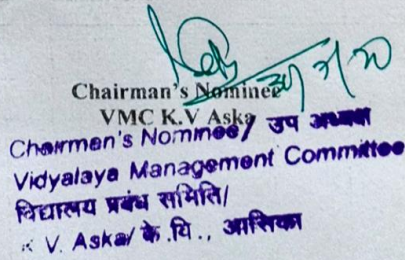 Chairman's Nominee
VMC K.V Aska
Chairman's Nominee/ उप अध्यक्ष
Vidyalaya Management Committee
विद्यालय प्रबंध समिति/
K V. Aska/ के .वि ., आसिका